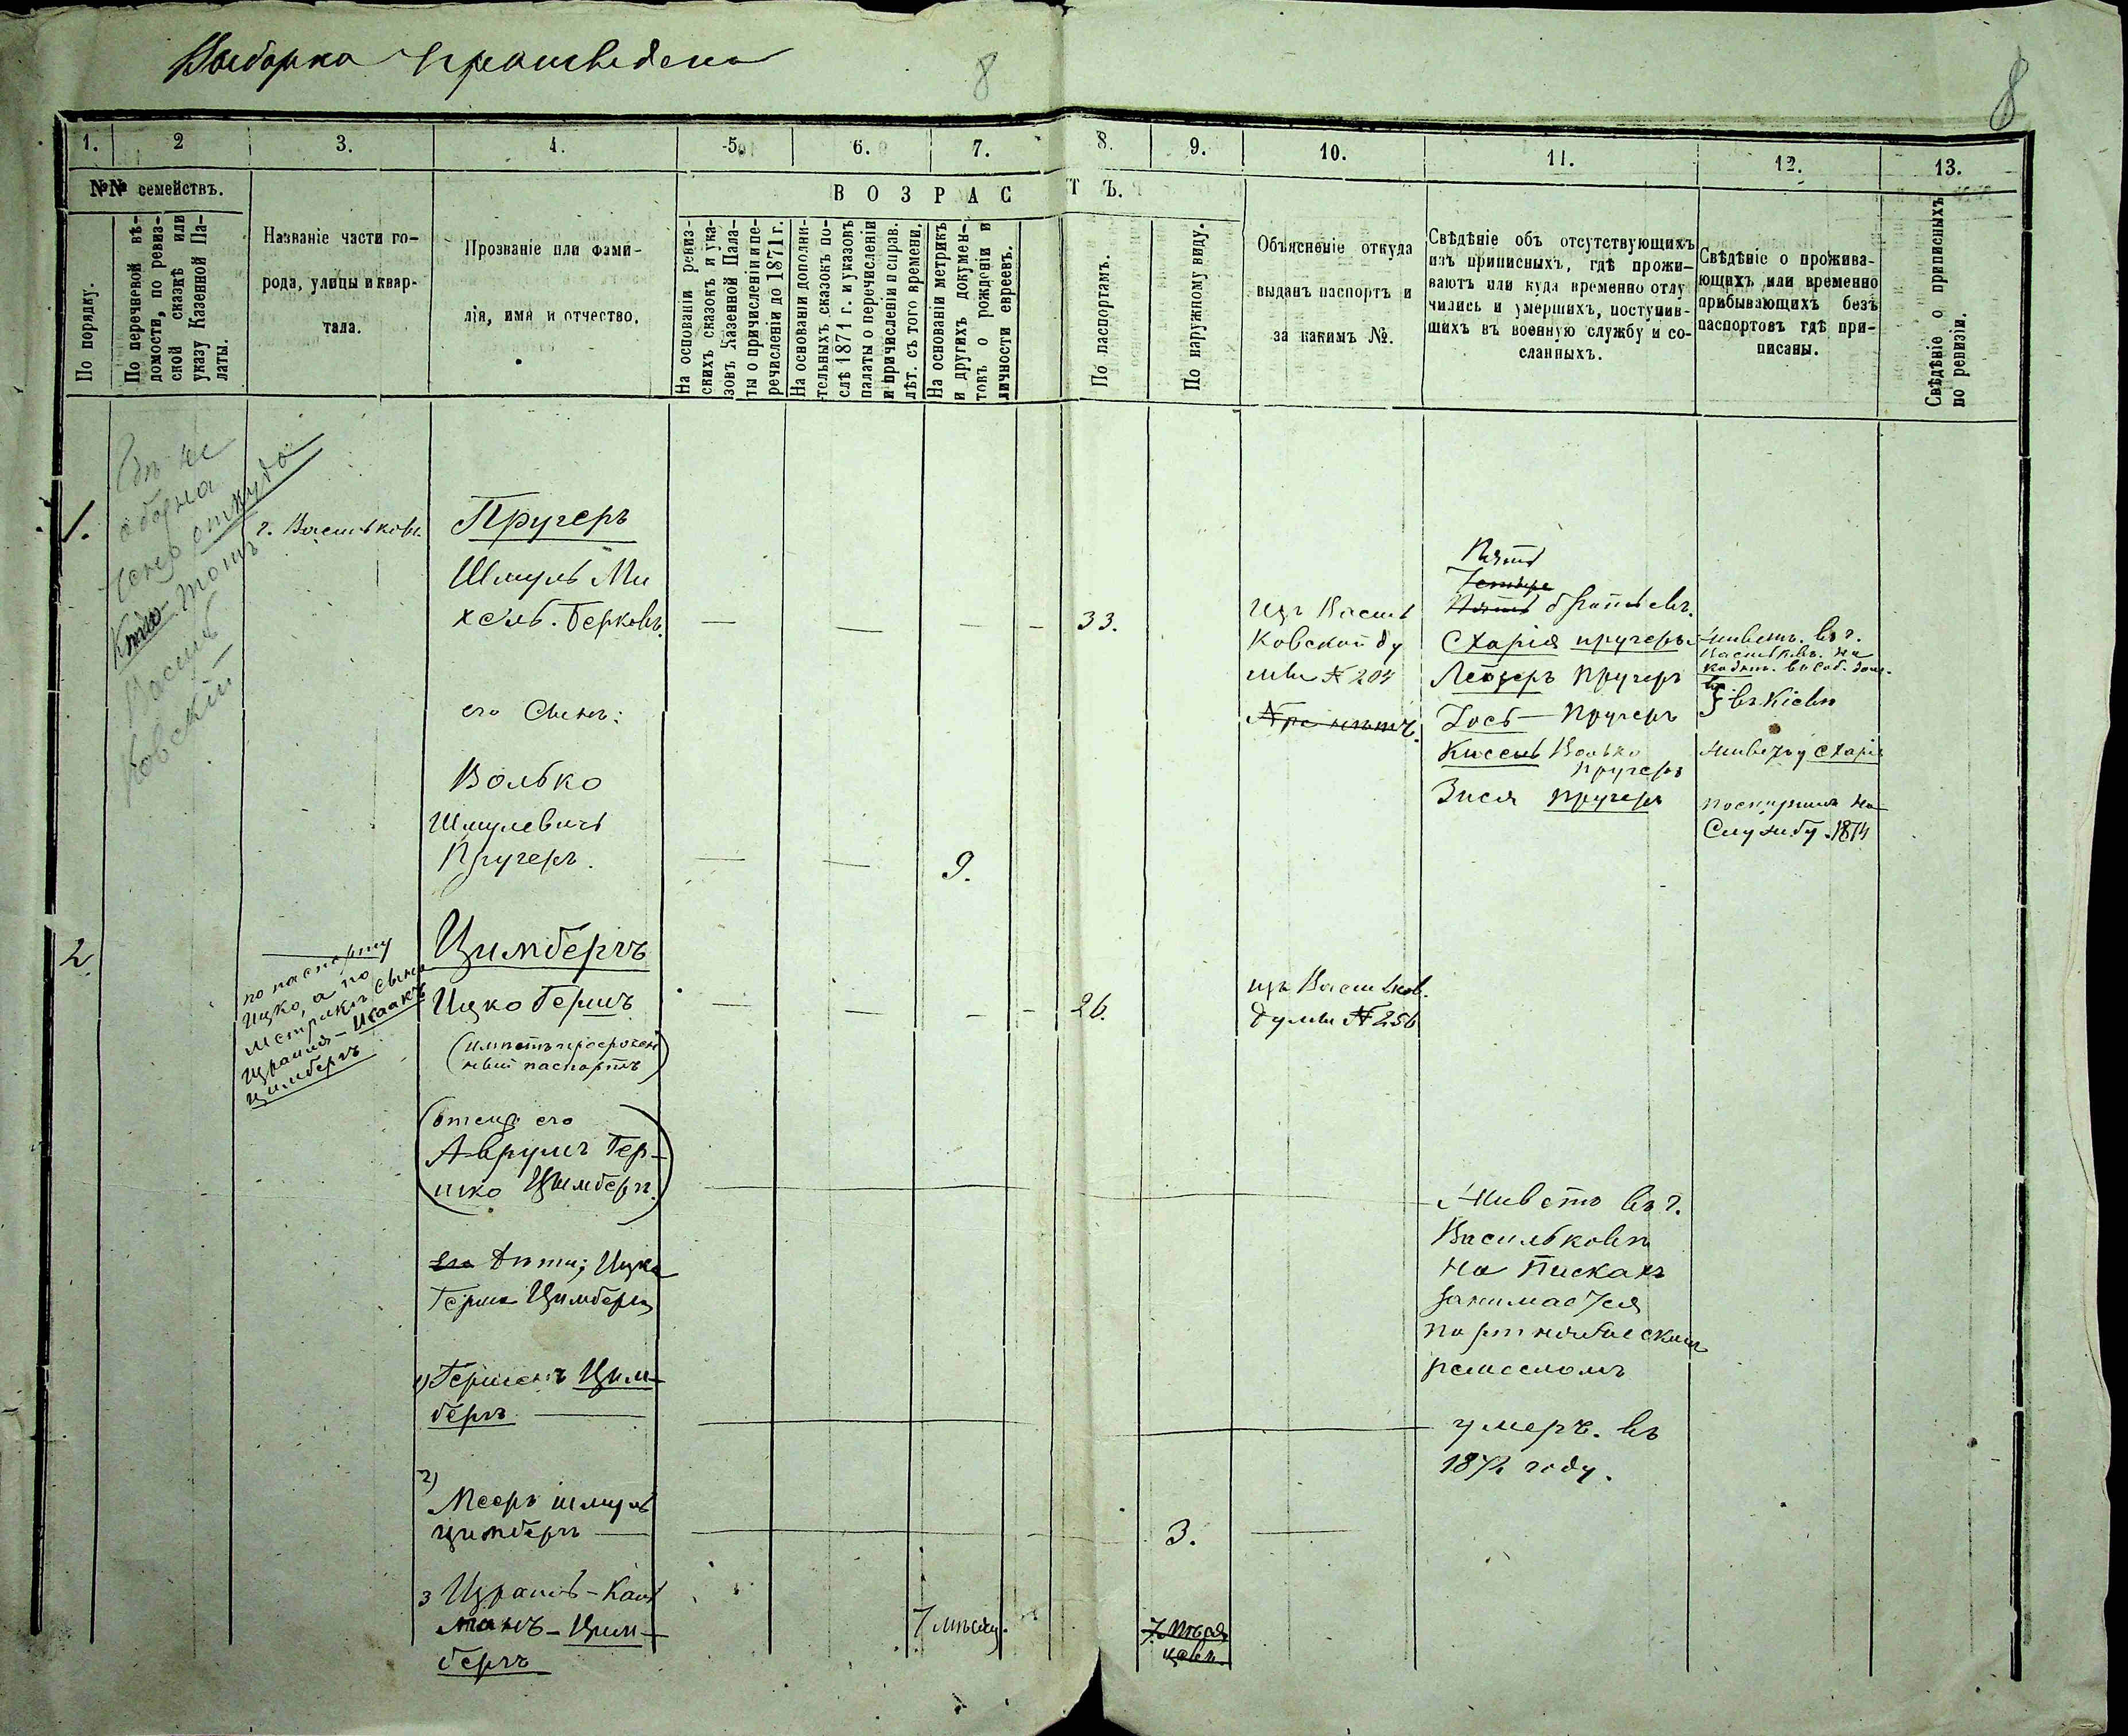 Выборка произведена
8
8
1.
2
3.
4.
5.
6.
7.
8.
9.
10.
11.
12.
13.
№№ семействъ.
По порядку.
По перечневой вѣ-
домости, по ревиз-
ской сказкѣ или
указу Казенной Па-
латы.
Названіе части го-
рода, улицы и квар-
тала.
Прозваніе или фами-
лія, имя и отчество.
ВОЗРАСТЪ.
На основаніи ревиз-
скихъ сказокъ и ука-
зовъ Казенной Пала-
ты о причисленіи и пе-
речисленіи до 1871 г.
На основаніи дополни-
тельныхъ сказокъ по-
слѣ 1871 г. и указовъ
палаты о перечисленіи
и причисленіи и справ.
лѣт. съ того времени.
На основаніи метрикъ
и другихъ докумен-
товъ о рожденіи и
личности евреевъ.
По паспортамъ.
По наружному виду.
Объясненіе откуда
выданъ паспортъ и
за какимъ №.
Свѣдѣніе объ отсутствующихъ
изъ приписныхъ, гдѣ прожи-
ваютъ или куда временно отлу
чились и умершихъ, поступив-
шихъ въ военную службу и со-
сланныхъ.
Свѣдѣніе о прожива-
ющихъ или временно
прибывающихъ безъ
паспортовъ гдѣ при-
писаны.
Свѣдѣніе о приписныхъ
по ревизіи.
откуда
Кто
Василь
ковскій
1.
г. Васильковъ.
Пручеръ
Шмуль Ми
хель. Берковъ.
33.
Изъ Василь
ковской ду
мы № 204
Пять
Четыре
Пять братьевъ.
Схарія пручеръ
Лейзеръ Пручеръ
Іось — Пручеръ
Кисель Волько
Пручеръ
Зися Пручеръ
живетъ. въ г.
въ Кіевѣ
живетъ у Схаріи
поступилъ на
Службу. 1874
его Сынъ:
Волько
Шмулевичъ
Пручеръ.
9.
2.
по паспорту
Ицко, а по
метрикѣ сына
Израиля — Исаакъ
Цимбергъ
Цимбергъ
Ицко Гершъ
(имѣетъ просрочен
ный паспортъ)
26.
изъ Васильков.
думы № 256
(отецъ его
Аврумъ Гер-
шко Цимбергъ.)
Живетъ въ г.
Васильковѣ
на Пискахъ
занимается
портняжескимъ
ремесломъ
его дѣти; Ицка
Герша Цимберга
1) Гершенъ Цим-
бергъ
умеръ. въ
1874 году.
2)
Мееръ шмуль
цимбергъ
3.
3 Израиль-Каль
манъ - Цим-
бергъ
7 мѣсяц.
7. Мѣся
цевъ.